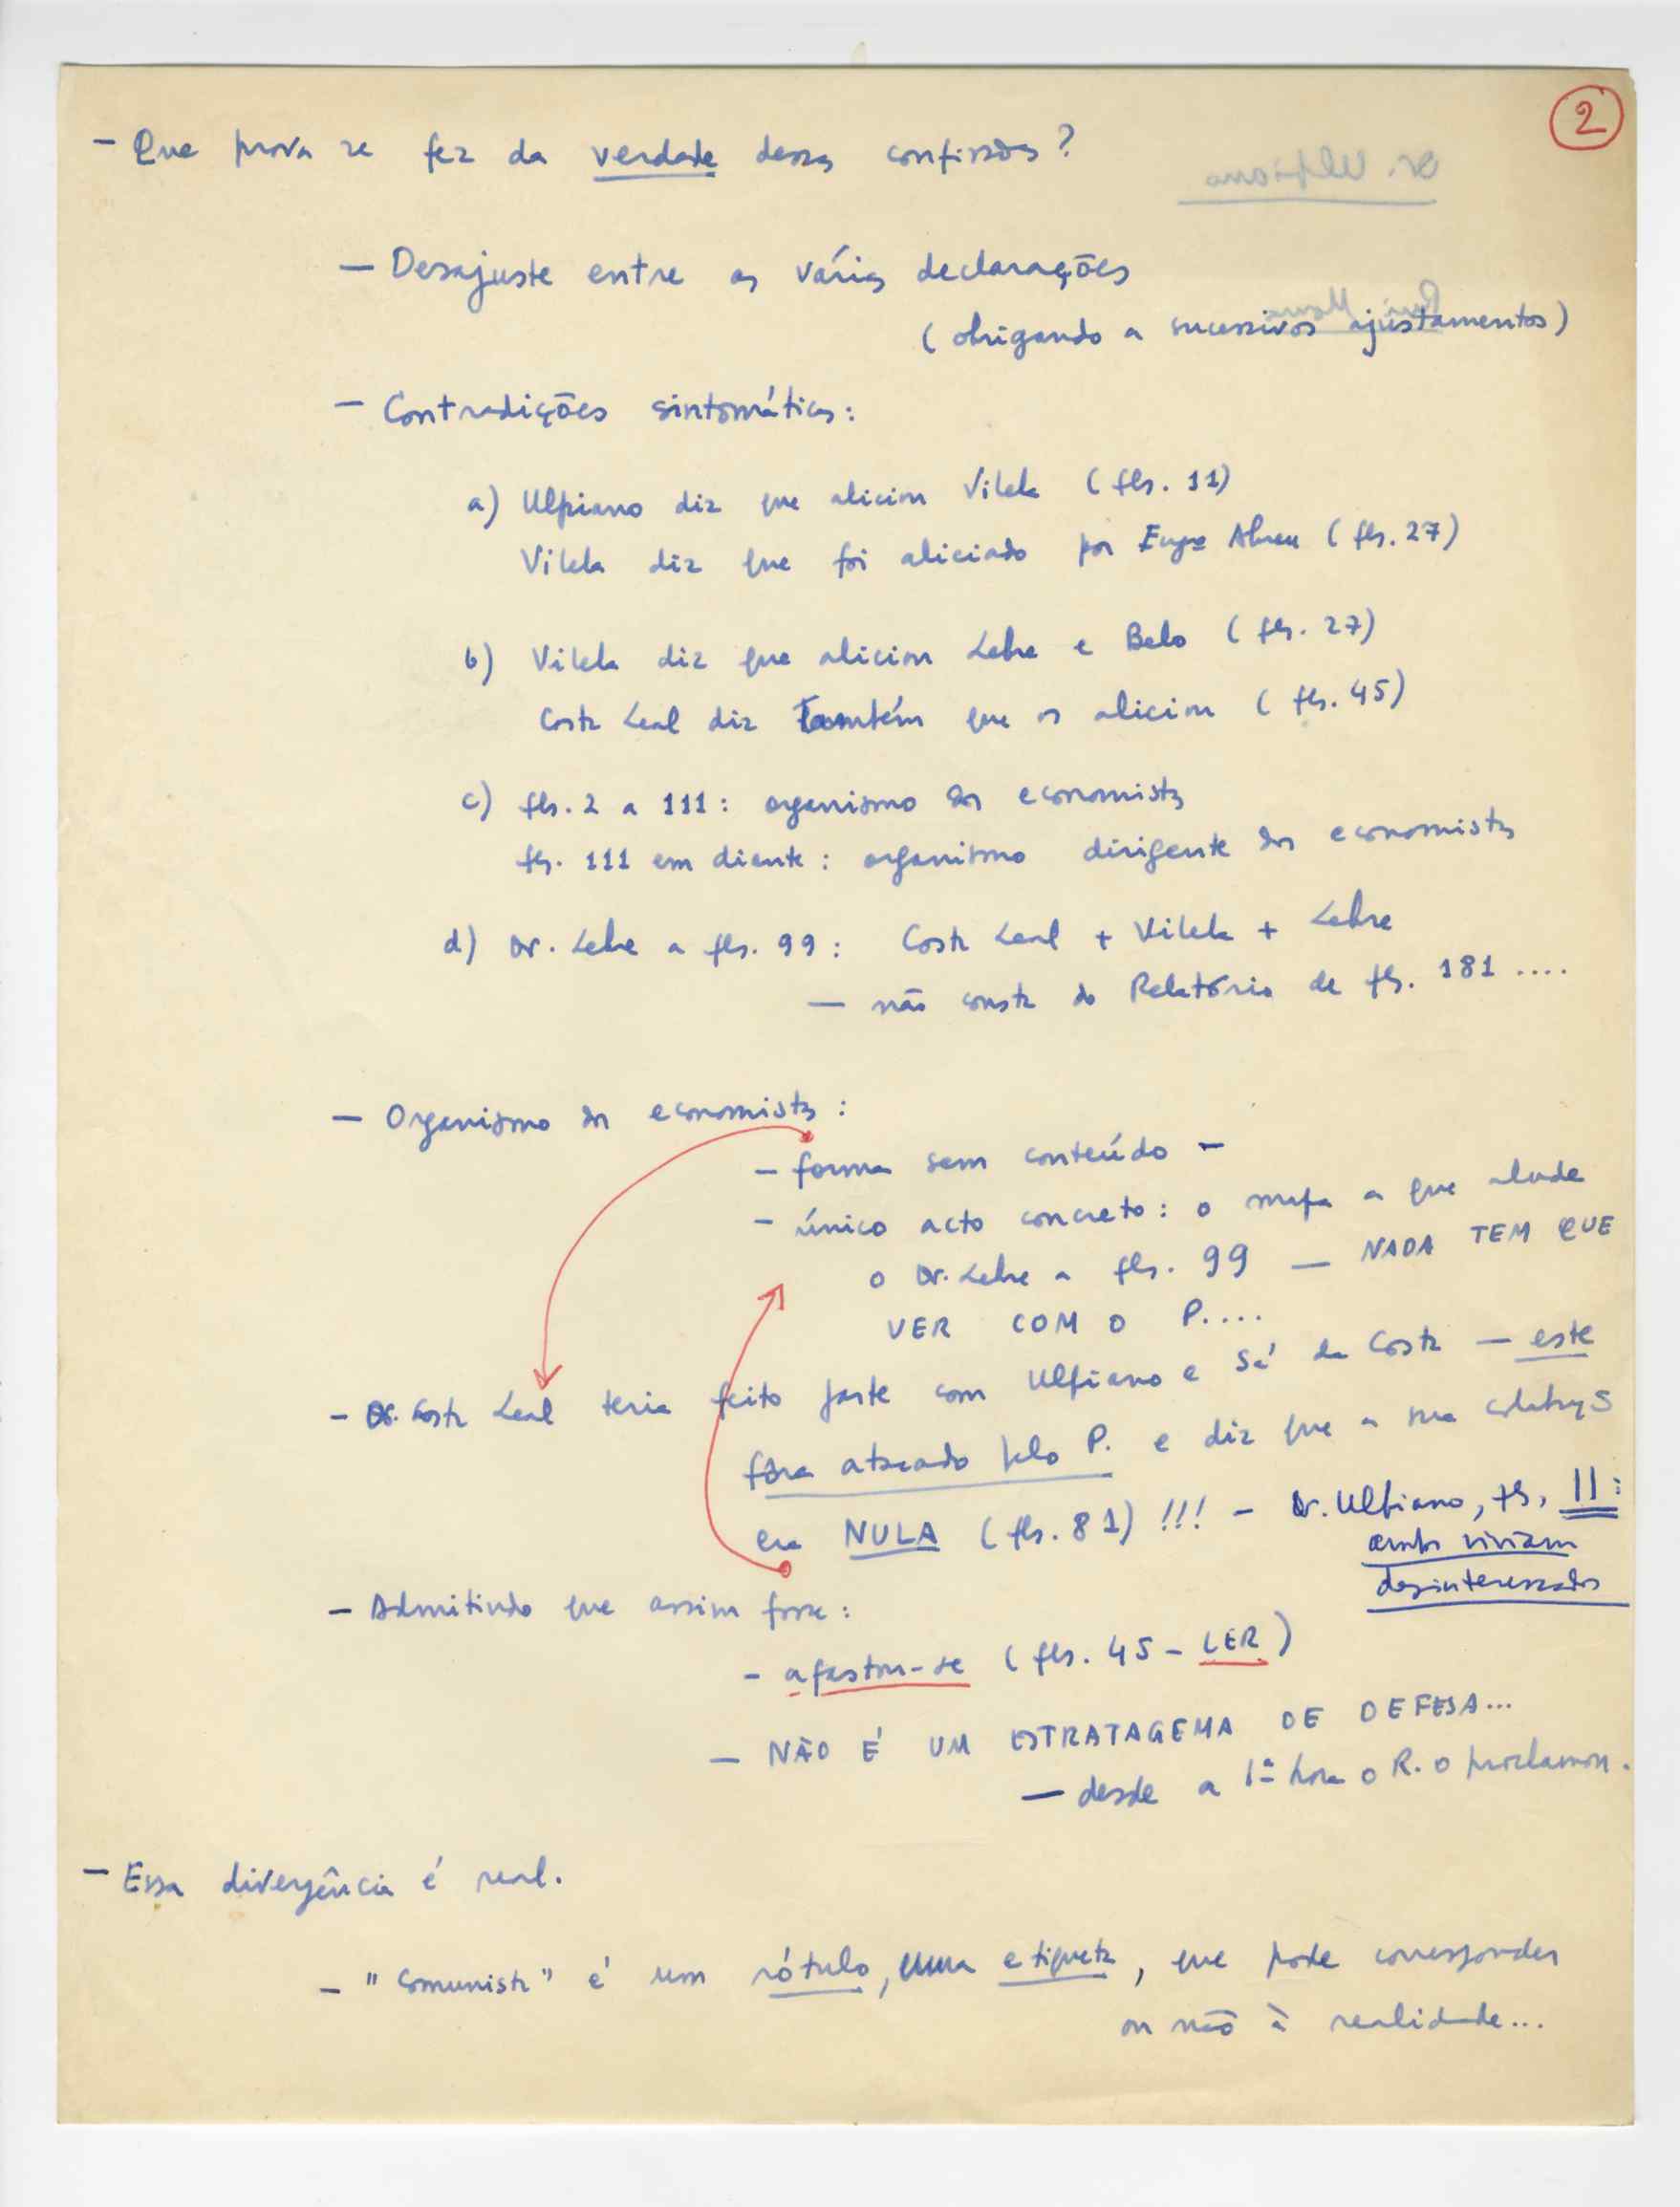 2
- Que prova se fez da verdade dessas confissões?
- Desajuste entre as várias declarações
(obrigando a sucessivos ajustamentos)
- Contradições sintomáticas:
a) Ulpiano diz que aliciou Vilela (fls. 11)
Vilela diz que foi aliciado por Engº Abreu (fls. 27)
b) Vilela diz que aliciou Lebre e Belo (fls. 27)
Costa Leal diz também que os aliciou (fls. 45)
c) fls. 2 a 111: organismo dos economistas
fls. 111 em diante: organismo dirigente dos economistas
d) Dr. Lebre a fls. 99: Costa Leal + Vilela + Lebre
- não consta do Relatório de fls. 181 ....
- Organismo dos economistas:
- forma sem conteúdo -
- único acto concreto: o mapa a que alude
o Dr. Lebre a fls. 99 - NADA TEM QUE
VER COM O P....
- Dr. Costa Leal teria feito parte com Ulpiano e Sá da Costa - este
fôra atacado pelo P. e diz que a sua
era NULA (fls. 81) !!! - Dr. Ulpiano, fls. 11:
ambos viviam
desinteressados
- Admitindo que assim fosse:
- afastou-se (fls. 45 - LER)
- NÃO É UM ESTRATAGEMA DE DEFESA...
- desde a 1ª hora o R. o proclamou.
- Essa divergência é real.
- "Comunista" é um rótulo, uma etiqueta, que pode corresponder
ou não à realidade...